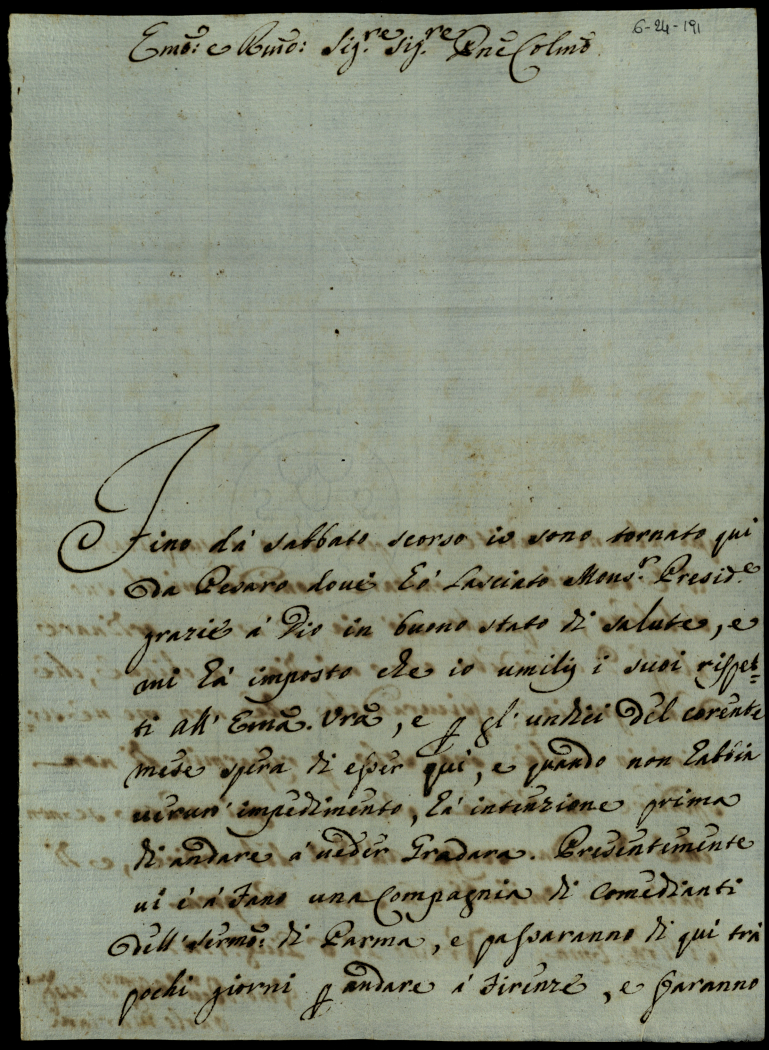 6-24-191
Emo: e Rmo: Sig.re Sig.re Pne Colmo
Fino dà sabbato scorso io sono tornato qui
da Pesaro dove hò lasciato Mons.r Presid.e
grazie à Dio in buono stato di salute, e
mi hà imposto che io umilij i suoi rispet=
ti all' Emã. Vrã, e p gl' undici del corente
mese spera di esser qui, e quando non habbia
verun' impedimento, hà intenzione prima
di andare à veder Gradara. Presentemente
vi è à Fano una Compagnia di Comedianti
dell' Sermo: di Parma, e passaranno di qui trà
pochi giorni p andare à Firenze, e faranno